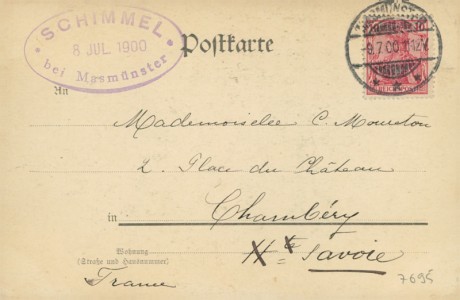 SCHIMMEL
8 JUL. 1900
bei Masmünster
Postkarte
9.7.00
An
Mademoiselle C. Moureton
2. Place du Château
in Chambéry
Wohnung
(Straße und Hausnummer)
Hte Savoie
France
7695